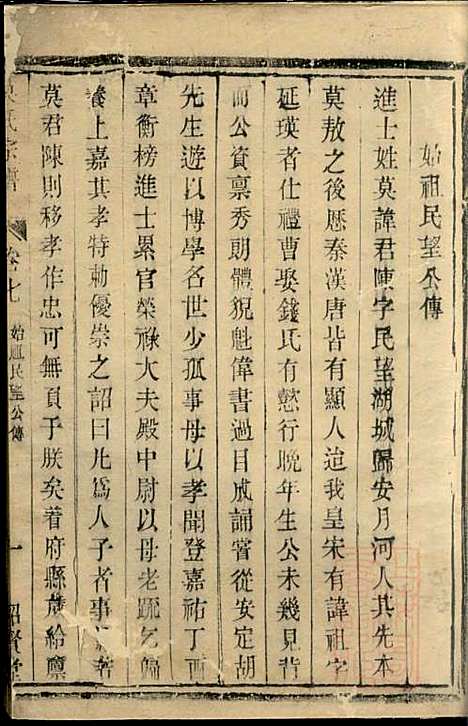 始祖民望公傳
進士姓莫諱君陳字民望湖城歸安月河人其先本
莫敖之後歷秦漢唐皆有顯人迨我皇宋有諱祖字
延瑛者仕禮曹娶錢氏有懿行晚年生公未幾見背
而公資禀秀朗體貌魁偉書過目成誦嘗從安定胡
先生遊以博學名世少孤事母以孝聞登嘉祐丁酉
章衡榜進士累官榮祿大夫殿中尉以母老疏乞歸
養上嘉其孝特勅優崇之詔曰凡為人子者事親若
莫君陳則移孝作忠可無負于朕矣着府縣歲給廪
莫氏宗譜 卷七 始祖民望公傳 一 紹賢堂